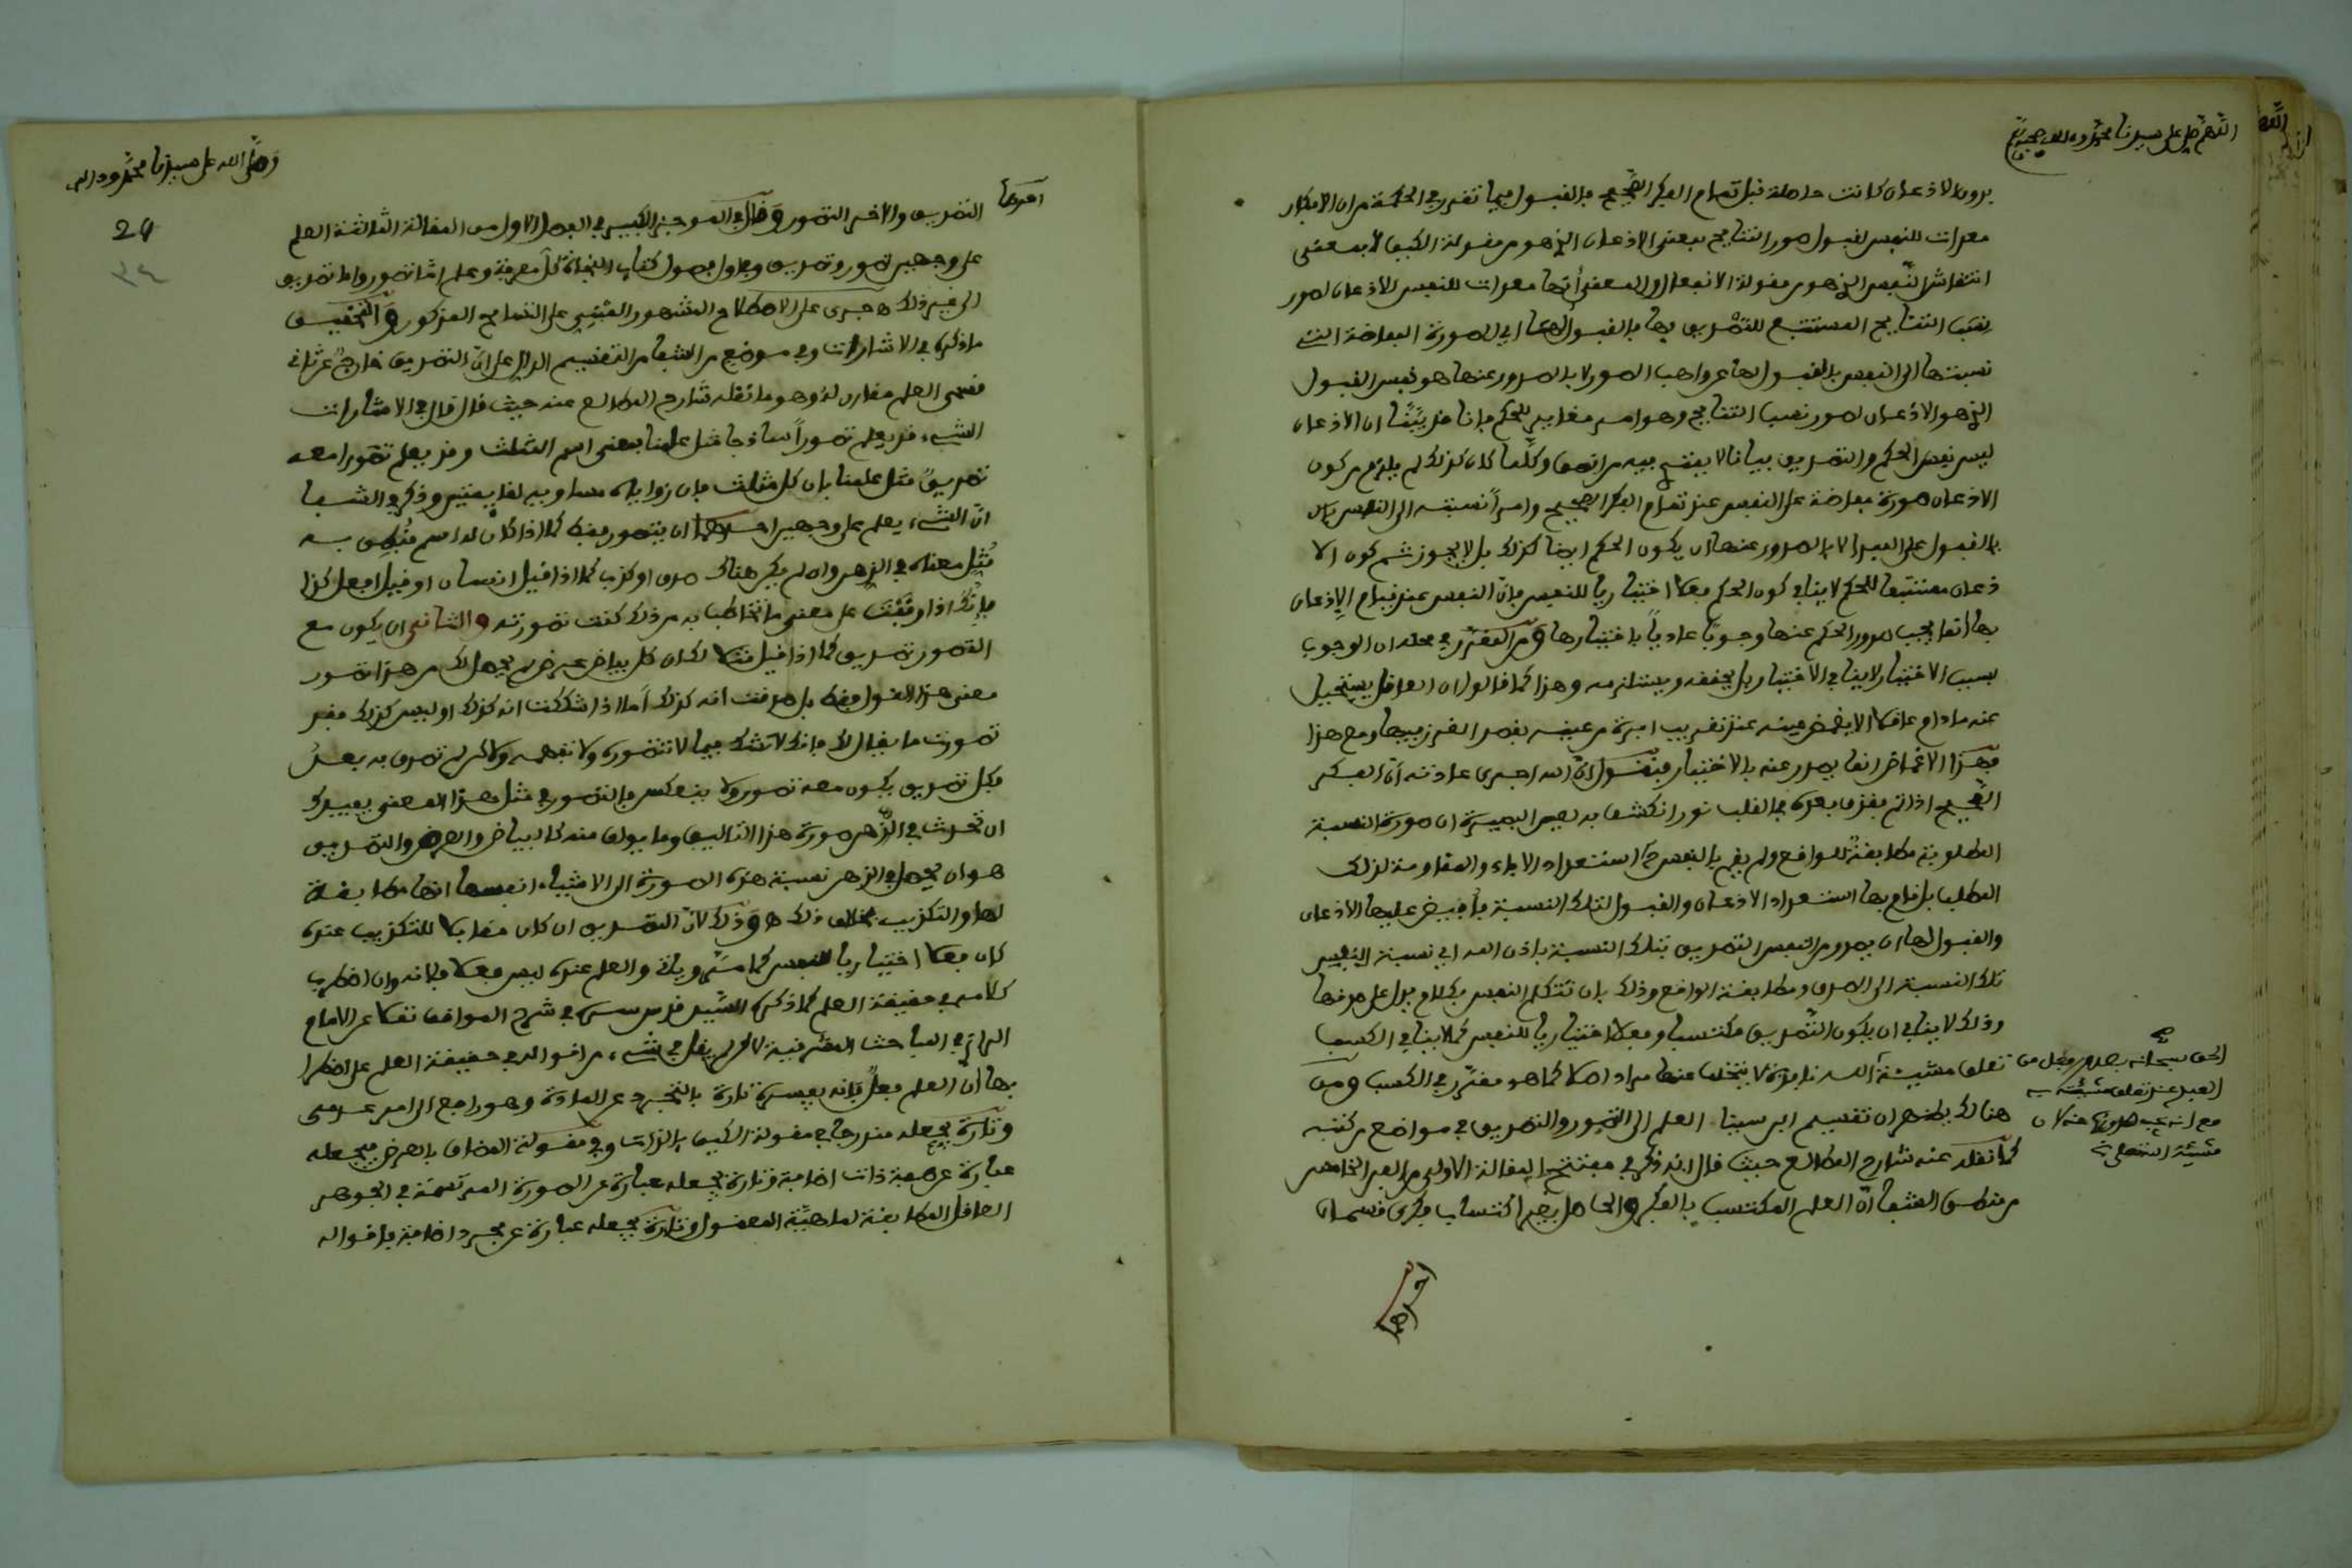 اللهم صل على سيدنا محمد وءاله وصحبه
بدون الاذعان كانت حاصلة قبل تمام الفكر الصحيح فالقبول فيما تقرر في الحكمة من ان الافكار
معدات للنفس لقبول صور النتائج بمعنى الاذعان الذي هو من مقولة الكيف لا بمعنى
انتقاش النفس الذي هو من مقولة الانفعال والمعنى أنها معدات للنفس للاذعان لصور
نسب النتائج المستتبع للتصديق بها فالقبول لها اي للصورة الفائضة التي
نسبتها الى النفس بالقبول لها عن واهب الصور لا بالصدور عنها هو نفس القبول
الذي هو الاذعان لصور نسب النتائج وهو امر مغاير للحكم فانا قد بيّنّا ان الاذعان
ليس نفس الحكم والتصديق بيانا لا يبقى فيه مراء وكلما كان كذلك لم يلزم من كون
الاذعان صورة فائضة على النفس عند تمام الفكر الصحيح وامراً نسبته الى النفس
بالقبول على المبدا لا بالصدور عنها ان يكون الحكم ايضا كذلك بل لا يجوز ثم كون الا
ذعان مستتبعا للحكم لا ينافي كون الحكم فعلا اختياريا للنفس فان النفس عند قيام الإذعان
بها انما يجب صدور الحكم عنها وجوبا عاديا باختيارها ومن المقرر في محله ان الوجوب
بسبب الاختيار لا ينافي الاختيار بل يحققه ويستلزمه وهذا كما قالوا ان العاقل يستحيل
عنه ما دام عاقلا الا يغمض عينه عند تقريب ابرة من عينه بقصد الغرز فيها ومع هذا
فهذا الاغماض انما يصدر عنه بالاختيار فنقول ان الله اجرى عادته أن الفكر
الصحيح اذا تم يقذف بعده في القلب نور انكشف به لعين البصيرة ان صورة النسبة
المطلوبة مطابقة للواقع ولم يبق بالنفس ح استعداد الاباء والمقاومة لذلك
المطلب بل قام بها استعداد الاذعان والقبول لتلك النسبة فأفيض عليها الاذعان
والقبول لها ان يصدر من النفس التصديق بتلك النسبة باذن الله اي نسبة النفس
تلك النسبة الى الصدق ومطابقة الواقع وذلك بان تتكلم النفس بكلام يدل على صدقها
وذلك لا ينافي ان يكون التصديق مكتسبا وفعلا اختياريا للنفس كما لا ينافي الكسب
تعلق مشيئة الله نافذة لا يتخلف عنها مراد اصلا كما هو مقرر في الكسب ومن
هنالك يظهر ان تقسيم ابن سينا العلم الى التصور والتصديق في مواضع من كتبه
كما نقله عنه شارح المطالع حيث قال انه ذكر في مفتتح المقالة الاولى من الفن الخامس
من منطق الشفا أن العلم المكتسب بالفكر والحاصل بغير اكتساب فكري قسمان
الحق سبحانه
العبد عند تعلق مشيئته به
مع انه يجب صدورها عنه لان
مشيئة الله تعلى
احدهما
وصلى الله على سيدنا محمد وءاله
24
٢٤
احدهما
التصديق والاخر التصور وقال في الموجز الكبير في الفصل الاول من المقالة الثالثة العلم
على وجهين تصور وتصديق وفي اول فصول كتاب النجاة كل معرفة وعلم اما تصور واما تصديق
الى غير ذلك جرى على الاصطلاح المشهور المبني على التسامح المذكور والتحقيق
ما ذكره في الاشارات وفي موضع من الشفا من التقسيم الدال على ان التصديق خارج عن
قسمي العلم مقارن له وهو ما نقله شارح المطالع عنه حيث قال قال في الاشارات
الشيء قد يعلم تصوراً ساذجا مثل علمنا بمعنى اسم المثلث وقد يعلم تصورا معه
تصديق مثل علمنا بان كل مثلث فان زواياه مساوية لقايمتين وذكر في الشفا
انّ الشيء يعلم على وجهين احدهما ان يتصور فقط كما اذا كان له اسم فنطق به
مُثِل معناه في الذهن وان لم يكن هناك صدق او كذب كما اذا قيل انسان او قيل افعل كذا
فإنك اذا وقفت على معنى ما تخاطب به من ذلك كنت تصورته والثاني ان يكون مع
التصور تصديق كما اذا قيل مثلا لك ان كل بياض عرض لم يحصل لك من هذا تصور
معنى هذا القول فقط بل صدقت انه كذلك أما اذا شككت انه كذلك او ليس كذلك فقد
تصورت ما يقال لك فانك لا تشك فيما لا تتصوره ولا تفهمه ولاكن لم تصدق به بعدُ
فكل تصديق يكون معه تصور ولا ينعكس فالتصور في مثل هذا المعنى يفيدك
ان تحدث في الذهن صورة هذا التاليف وما يولف منه كالبياض والعرض والتصديق
هو ان يحصل في الذهن نسبة هذه الصورة الى الاشياء انفسها انها مطابقة
لها والتكذيب بخلاف ذلك ه وذلك لان التصديق ان كان مقابلا للتكذيب عنده
كان فعلا اختياريا للنفس كما مر وياتي والعلم عنده ليس فعلا فانه وان اضطرب
كلامه في حقيقة العلم كما ذكره السيد قدس سره في شرح المواقف نقلا عن الامام
الرازي في المباحث المشرقية لاكن لم يقل في شيء من اقواله في حقيقة العلم على اضطرا
بها انّ العلم فعل فإنه يفسره تارة بالتجرد عن المادة وهو راجع الى امر عدمي
وتارة يجعله مندرجا في مقولة الكيف بالذات وفي مقولة المضاف بالعرض فيجعله
عبارة عن صفة ذات اضافة وتارة يجعله عبارة عن الصورة المرتسمة في الجوهر
العاقل المطابقة لماهية المعقول وتارة يجعله عبارة عن مجرد اضافة فاقواله